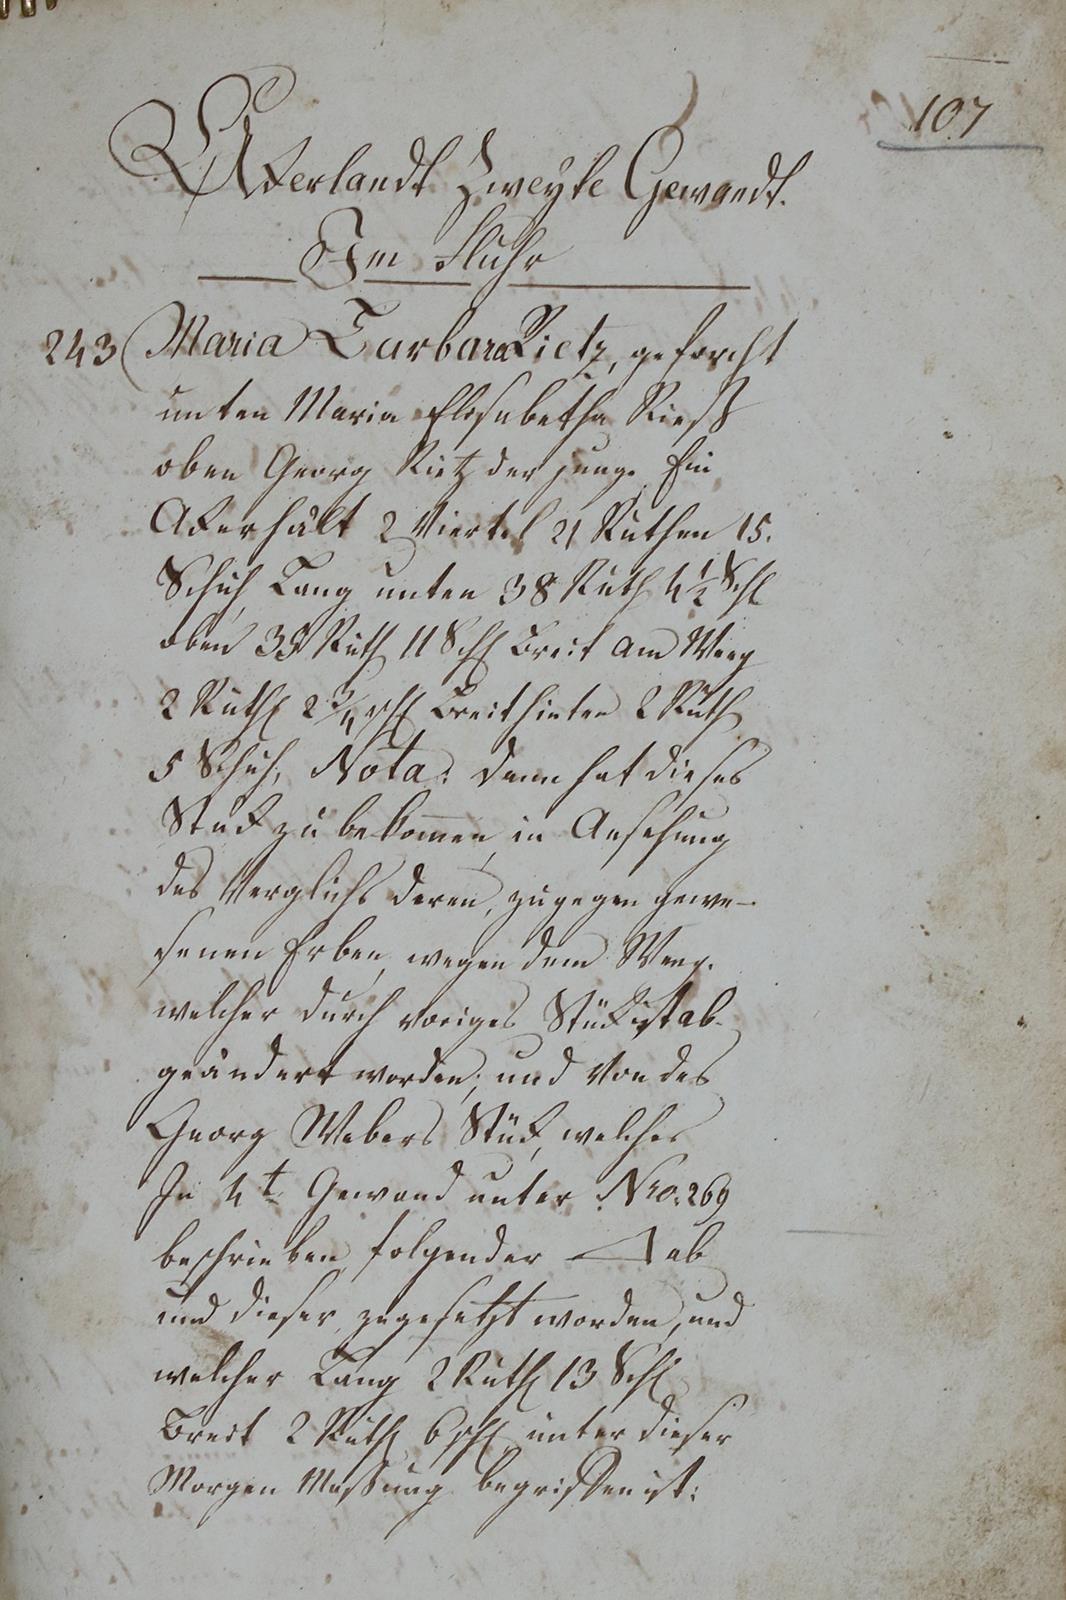 107
Akerlandt Zweyte Gewandt.
Im Fluhr
243 Maria Barbara Rietz, geforcht
unten Maria Elisabetha Rieß
oben Georg Rietz der junge, Ein
Aker hält 2 Viertel 21 Ruthen 15.
Schuh, Lang unten 38 Ruth 4 1/2 Sch
oben 39 Ruth 11 Sch Breit am Weeg
2 Ruth 2 3/4 sch Breit hinten 2 Ruth
5 Schuh, Nota: dann hat dieses
Stük zu bekommen, in Ansehung
des Verglichs deren, zugegen gewe-
senen Erben, wegen dem Weeg.
welcher durch voriges Stük ist ab-
geändert worden; und von des
Georg Webers Stük, welches
In 4t Gewand unter Nro: 269
beschrieben folgender ab
und dieser zugesetzt worden, und
welcher Lang 2 Ruth 13 Sch
Breit 2 Ruth 6 sch unter dieser
Morgen Messung begriffen ist: